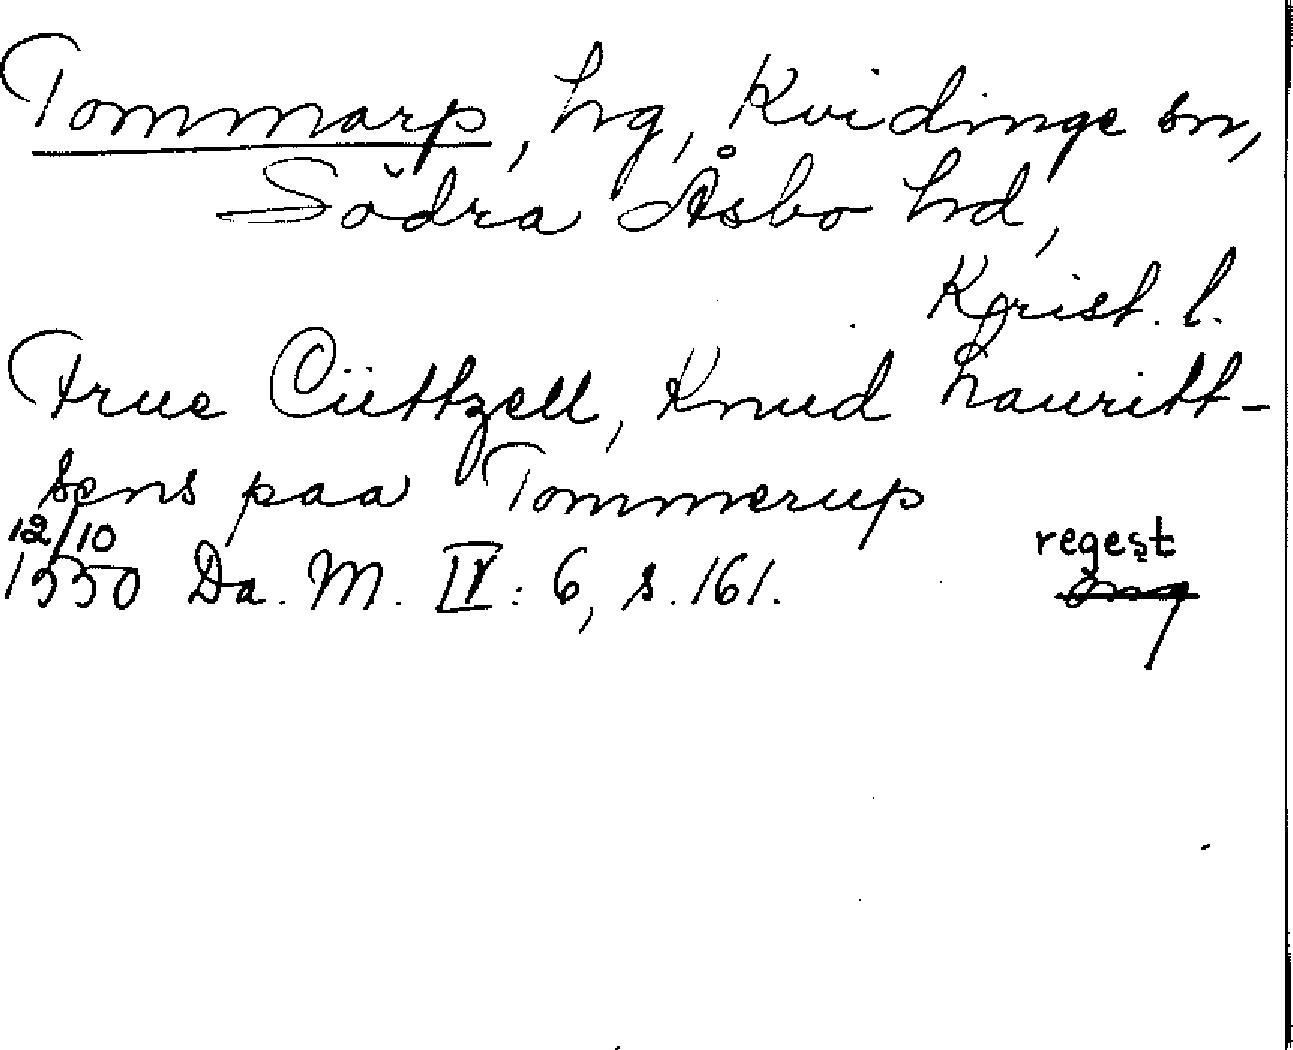 Tommarp, hg, Kvidinge sn,
Södra Åsbo hd,
Krist. l.
Frue Cüttzell, Knud Lauritt-
sens paa Tommerup
12/10
1550 Da. M. IV: 6, s. 161.
regest